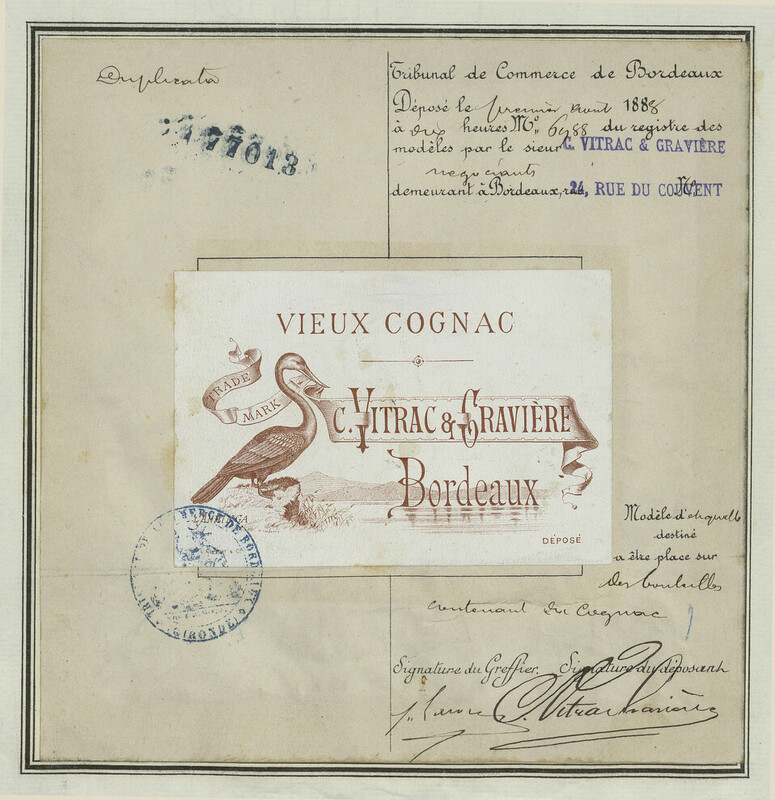 Duplicata
77013
Tribunal de Commerce de Bordeaux
Déposé le premier Août 1888
à dix heures M. Nº 6988 du registre des
modèles par le sieur C. VITRAC & GRAVIÈRE
negociants
demeurant à Bordeaux, rue 24, RUE DU COUVENT
VIEUX COGNAC
TRADE
MARK
C. VITRAC & GRAVIÈRE
Bordeaux
DÉPOSÉ
TRIBUNAL DE COMMERCE DE BORDEAUX
(GIRONDE)
Modèle d'etiquette
destiné
a être place sur
des bouteilles
contenant du Cognac
Signature du Greffier. Signature du déposant
C. Vitrac Gravière